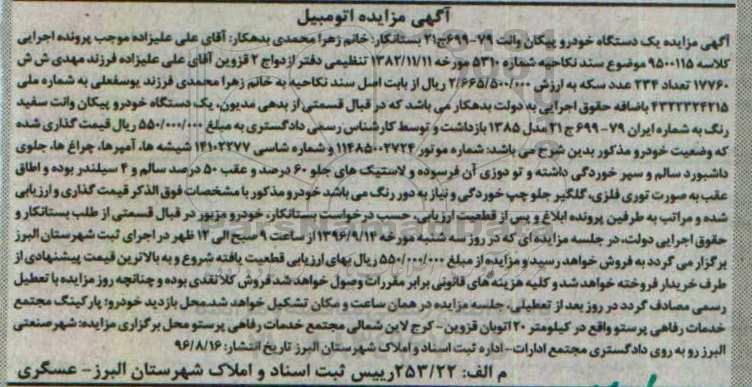 آگهی مزایده اتومبیل
آگهی مزایده یک دستگاه خودرو پیکان وانت ۷۹-۶۹۹ج۲۱ بستانکار: خانم زهرا محمدی بدهکار: آقای علی علیزاده موجب پرونده اجرایی
کلاسه ۹۵۰۰۱۱۵ موضوع سند نکاحیه شماره ۵۳۱۰ مورخه ۱۳۸۲/۱۱/۱۱ تنظیمی دفتر ازدواج ۲ قزوین آقای علی علیزاده فرزند مهدی ش ش
۱۷۷۶۰ تعداد ۲۳۴ عدد سکه به ارزش ۲/۶۶۵/۵۰۰/۰۰۰ ریال از بابت اصل سند نکاحیه به خانم زهرا محمدی فرزند یوسفعلی به شماره ملی
۴۳۲۲۳۲۴۲۱۵ باضافه حقوق اجرایی به دولت بدهکار می باشد که در قبال قسمتی از بدهی مدیون، یک دستگاه خودرو پیکان وانت سفید
رنگ به شماره ایران ۷۹- ۶۹۹ ج ۲۱ مدل ۱۳۸۵ بازداشت و توسط کارشناس رسمی دادگستری به مبلغ ۵۵۰/۰۰۰/۰۰۰ ریال قیمت گذاری شده
که وضعیت خودرو مذکور بدین شرح می باشد: شماره موتور ۱۱۴۸۵۰۰۲۷۲۴ و شماره شاسی ۱۴۱۰۲۲۷۷ شیشه ها، آمپرها، چراغ ها، جلوی
داشبورد سالم و سپر خوردگی داشته و تو دوزی آن فرسوده و لاستیک های جلو ۶۰ درصد و عقب ۵۰ درصد سالم و ۴ سیلندر بوده و اطاق
عقب به صورت توری فلزی، گلگیر جلو چپ خوردگی و نیاز به دور رنگ می باشد خودرو مذکور با مشخصات فوق الذکر قیمت گذاری و ارزیابی
شده و مراتب به طرفین پرونده ابلاغ و پس از قطعیت ارزیابی، حسب درخواست بستانکار، خودرو مزبور در قبال قسمتی از طلب بستانکار و
حقوق اجرایی دولت، در جلسه مزایده ای که در روز سه شنبه مورخه ۱۳۹۶/۹/۱۴ از ساعت ۹ صبح الی ۱۲ ظهر در اجرای ثبت شهرستان البرز
برگزار می گردد به فروش خواهد رسید و مزایده از مبلغ ۵۵۰/۰۰۰/۰۰۰ ریال بهای ارزیابی قطعیت یافته شروع و به بالاترین قیمت پیشنهادی از
طرف خریدار فروخته خواهد شد و کلیه هزینه های قانونی برابر مقررات وصول خواهد شد فروش کلا نقدی بوده و چنانچه روز مزایده با تعطیل
رسمی مصادف گردد در روز بعد از تعطیلی، جلسه مزایده در همان ساعت و مکان تشکیل خواهد شد. محل بازدید خودرو: پارکینگ مجتمع
خدمات رفاهی پرستو واقع در کیلومتر ۲۰ اتوبان قزوین- کرج لاین شمالی مجتمع خدمات رفاهی پرستو محل برگزاری مزایده: شهرصنعتی
البرز رو به روی دادگستری مجتمع ادارات- اداره ثبت اسناد و املاک شهرستان البرز تاریخ انتشار: ۹۶/۸/۱۶
م الف: ۲۵۳/۲۲ رییس ثبت اسناد و املاک شهرستان البرز- عسگری